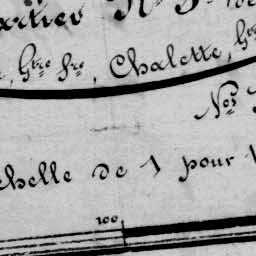 artier N° 3
Gtre Sre, Chalette, G
Nos
chelle de 1 pour 1
100